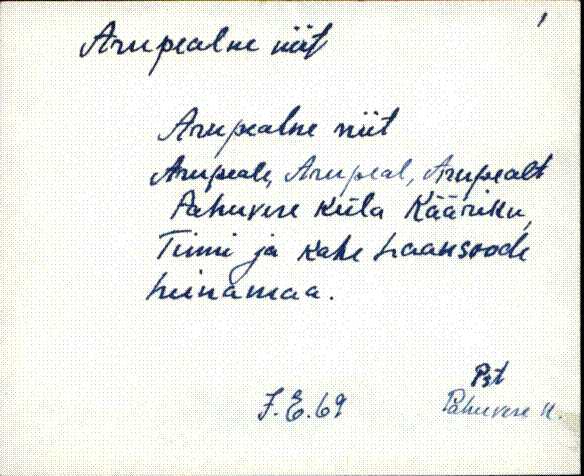 Arupealne niit
Arupealne niit
Arupeale, Arupeal, Arupealt
Pahuvere küla Kääriku,
Timmi ja kahe Laansoode
heinamaa.
Pst
J.E.69
Pahuvere k.